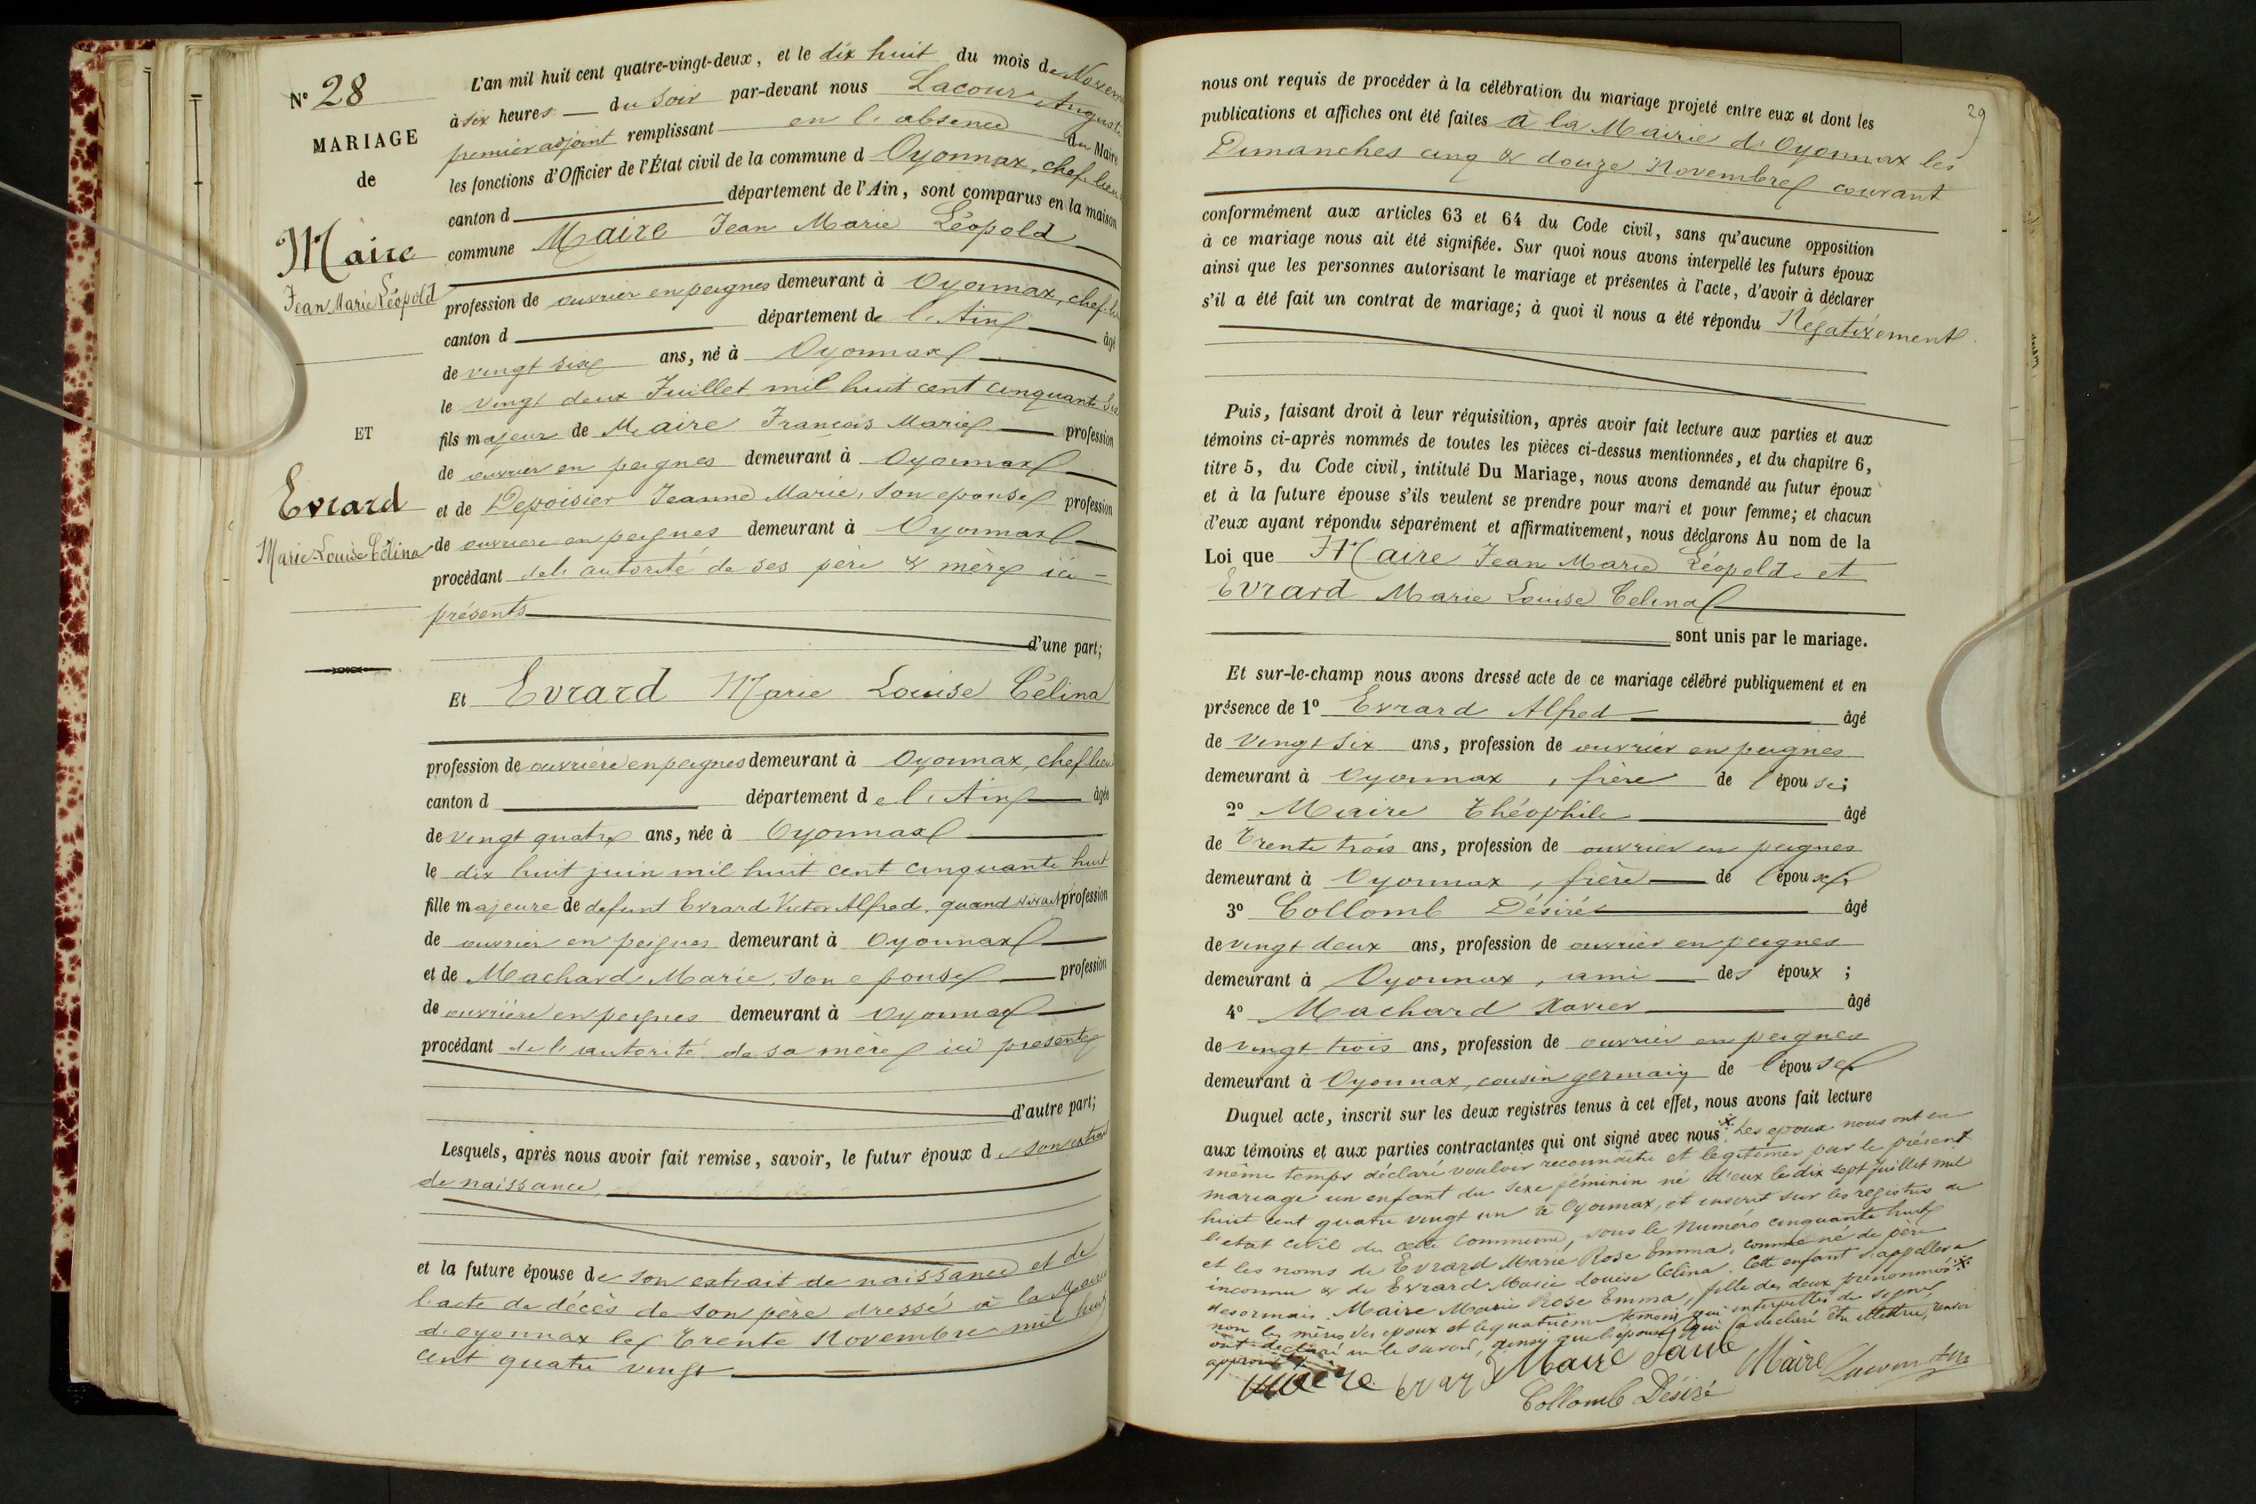 N° 28
MARIAGE
de
Maire
Jean Marie Léopold
ET
Evrard
Marie Louise Célina
L'an mil huit cent quatre-vingt-deux, et le dix huit du mois de Novem
à six heures du soir par-devant nous Lacour Auguste
premier adjoint remplissant en l'absence du Maire
les fonctions d'Officier de l'État civil de la commune d Oyonnax, chef lieu
canton d département de l'Ain, sont comparus en la maison
commune Maire Jean Marie Léopold
profession de ouvrier en peignes demeurant à Oyonnax, chef-li
canton d département de l'Ain âgé
de vingt six ans, né à Oyonnax
le vingt deux Juillet mil huit cent cinquante six
fils majeur de Maire François Marie profession
de ouvrier en peignes demeurant à Oyonnax
et de Depoisier Jeanne Marie, son epouse profession
de ouvriere en peignes demeurant à Oyonnax
procédant de l'autorité de ses père & mère ici
présents
d'une part;
Et Evrard Marie Louise Célina
profession de ouvrière en peignes demeurant à Oyonnax, chef lieu
canton d département de l'Ain âgée
de vingt quatre ans, née à Oyonnax
le dix huit juin mil huit cent cinquante huit
fille majeure de defunt Evrard Victor Alfred, quand vivait profession
de ouvrier en peignes demeurant à Oyonnax
et de Machard Marie, son epouse profession
de ouvrière en peignes demeurant à Oyonnax
procédant de l'autorité de sa mère ici presente
d'autre part;
Lesquels, après nous avoir fait remise, savoir, le futur époux de son extrait
de naissance,
et la future épouse de son extrait de naissance et de
l'acte de décès de son père dressé à la Mairie
d'oyonnax le Trente Novembre mil huit
cent quatre vingt
29
nous ont requis de procéder à la célébration du mariage projeté entre eux et dont les
publications et affiches ont été faites à la Mairie d'Oyonnax les
Dimanches cinq & douze Novembre courant
conformément aux articles 63 et 64 du Code civil, sans qu'aucune opposition
à ce mariage nous ait été signifiée. Sur quoi nous avons interpellé les futurs époux
ainsi que les personnes autorisant le mariage et présentes à l'acte, d'avoir à déclarer
s'il a été fait un contrat de mariage; à quoi il nous a été répondu Négativement.
Puis, faisant droit à leur réquisition, après avoir fait lecture aux parties et aux
témoins ci-après nommés de toutes les pièces ci-dessus mentionnées, et du chapitre 6,
titre 5, du Code civil, intitulé Du Mariage, nous avons demandé au futur époux
et à la future épouse s'ils veulent se prendre pour mari et pour femme; et chacun
d'eux ayant répondu séparément et affirmativement, nous déclarons Au nom de la
Loi que Maire Jean Marie Léopold et
Evrard Marie Louise Celina
sont unis par le mariage.
Et sur-le-champ nous avons dressé acte de ce mariage célébré publiquement et en
présence de 1° Evrard Alfred âgé
de vingt six ans, profession de ouvrier en peignes
demeurant à Oyonnax, frère de l'épouse;
2° Maire Théophile âgé
de Trente trois ans, profession de ouvrier en peignes
demeurant à Oyonnax, frère de l'époux;
3° Collomb Désiré âgé
de vingt deux ans, profession de ouvrier en peignes
demeurant à Oyonnax, ami des époux;
4° Machard Xavier âgé
de vingt trois ans, profession de ouvrier en peignes
demeurant à Oyonnax, cousin germain de l'épouse
Duquel acte, inscrit sur les deux registres tenus à cet effet, nous avons fait lecture
aux témoins et aux parties contractantes qui ont signé avec nous. Les epoux nous ont en
même temps déclaré vouloir reconnaître et legitimer par le présent
mariage un enfant du sexe féminin né d'eux le dix sept juillet mil
huit cent quatre vingt un à Oyonnax, et inscrit sur les registres de
l'etat civil de cette commune, sous le Numéro cinquante huit
et les noms de Evrard Marie Rose Emma, comme né de père
inconnu & de Evrard Marie Louise Célina. Cette enfant s'appellera
désormais Maire Marie Rose Emma, fille des deux prénommés
non les mères des epoux et le quatrième témoin qui interpellés de signer
ont déclaré ne le savoir, ainsi que l'épouse qui a déclaré être illettrée, renvoi
approuvé
Maire Evrar Maire Maire Lacour
Collomb Désiré